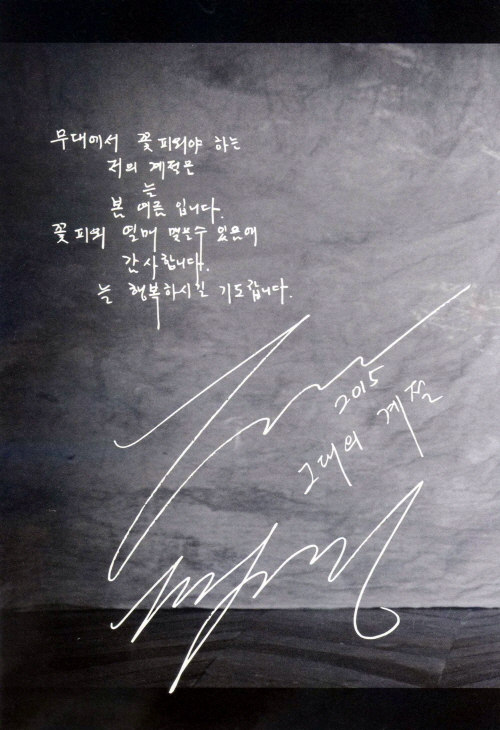 무대에서 꽃 피워야 하는
저의 계절은
늘
봄 여름 입니다.
꽃 피워 열매 맺을수 있음에
감사합니다.
늘 행복하시길 기도합니다.
2015
그대의 계절